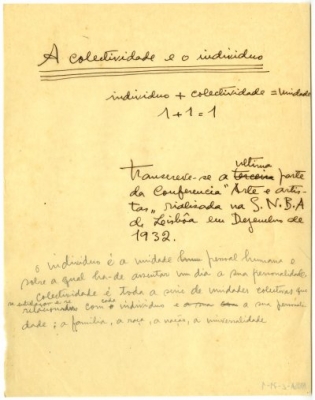 A colectividade e o individuo
individuo + colectividade = unidade
1 + 1 = 1
ultima
Transcreve-se a terceira parte
da Conferencia "Arte e artis-
tas" rialisada na S.N.B.A
de Lisbôa em Dezembro de
1932.
o individuo é a unidade pessoal humana
sobre a qual ha-de assentar um dia a sua personalidade
colectividade é toda a serie de unidades colectivas que
relacionadas com o individuo e a sua
dade: a familia, a raça, a nação, a universalidade